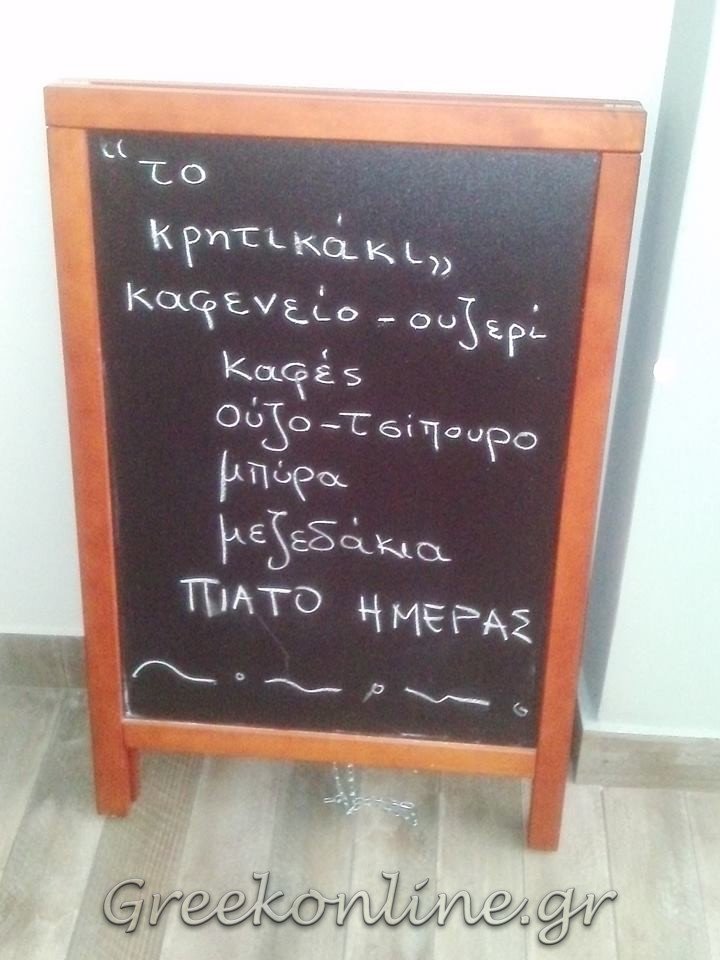 “το
κρητικάκι»
καφενείο - ουζερί
καφές
ούζο - τσίπουρο
μπύρα
μεζεδάκια
ΠΙΑΤΟ ΗΜΕΡΑΣ
Greekonline.gr